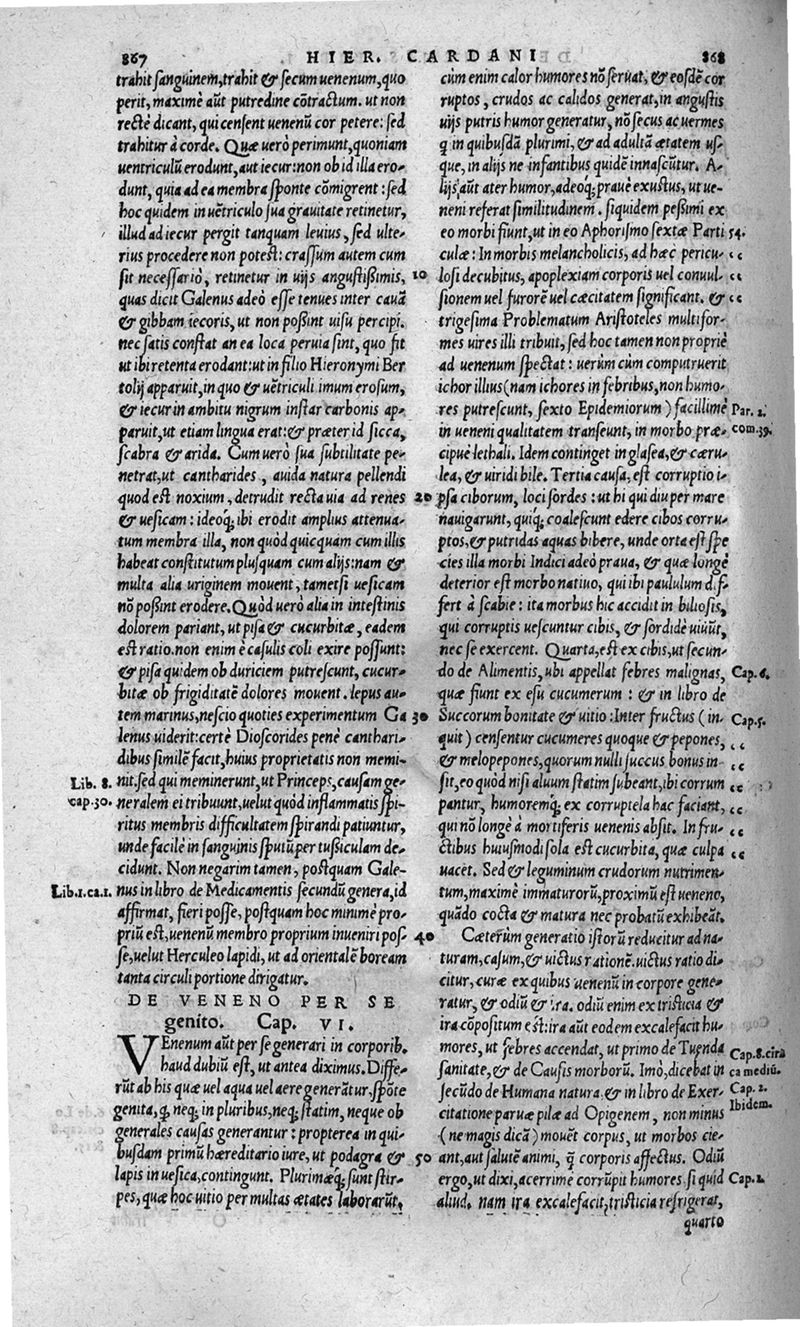 867 HIER. CARDANI 868
trahit sanguinem, trahit & secum uenenum, quo
perit, maximè aūt putredine cōtractum. ut non
rectè dicant, qui censent uenenū cor petere: sed
trahitur à corde. Quæ uerò perimunt, quoniam
uentriculū erodunt, aut iecur: non ob id illa ero-
dunt, quia ad ea membra sponte cōmigrent: sed
hoc quidem in uētriculo sua grauitate retinetur,
illud ad iecur pergit tanquam leuius, sed ulte-
rius procedere non potest: crassum autem cum
sit necessariò, retinetur in uijs angustißimis, 10
quas dicit Galenus adeò esse tenues inter cauā
& gibbam iecoris, ut non poßint uisu percipi.
nec satis constat an ea loca peruia sint, quo fit
ut ibi retenta erodant: ut in filio Hieronymi Ber
tolij apparuit, in quo & uētriculi imum erosum,
& iecur in ambitu nigrum instar carbonis ap-
paruit, ut etiam lingua erat: & præter id sicca,
scabra & arida. Cum uerò sua subtilitate pe-
netrat, ut cantharides, auida natura pellendi
quod est noxium, detrudit recta uia ad renes 20
& uesicam: ideoq́; ibi erodit amplius attenua-
tum membra illa, non quòd quicquam cum illis
habeat constitutum plusquam cum alijs: nam &
multa alia urinam mouent, tametsi uesicam
nō poßint erodere. Quòd uerò alia in intestinis
dolorem pariant, ut pisa & cucurbitæ, eadem
est ratio. non enim è casulis coli exire possunt:
& pisa quidem ob duriciem putrescunt, cucur-
bitæ ob frigiditatē dolores mouent. lepus au-
tem marinus, nescio quoties experimentum Ga 30
lenus uiderit: certè Dioscorides penè canthari-
dibus similē facit, huius proprietatis non memi-
Lib. 8. nit. sed qui meminerunt, ut Princeps, causam ge-
cap. 30. neralem ei tribuunt, uelut quòd inflammatis spi-
ritus membris difficultatem spirandi patiuntur,
unde facilè in sanguinis sputū per tußiculam de-
cidunt. Non negarim tamen, postquam Gale-
Lib.1.ca.1. nus in libro de Medicamentis secundū genera, id
affirmat, fieri posse, postquam hoc minimè pro-
priū est, uenenū membro proprium inueniri pos- 40
se, uelut Herculeo lapidi, ut ad orientalē boream
tanta circuli portione dirigatur.
DE VENENO PER SE
genito. Cap. VI.
VEnenum aūt per se generari in corporib.
haud dubiū est, ut antea diximus. Diffe-
rūt ab his quæ uel aqua uel aere generātur. spōte
genita, q̄ neq; in pluribus, neq; statim, neque ob
generales causas generantur: propterea in qui-
busdam primū hæreditario iure, ut podagra & 50
lapis in uesica, contingunt. Plurimæq́; sunt stir-
pes, quæ hoc uitio per multas ætates laborarūt.
cùm enim calor humores nō seruat, & eosdē cor
ruptos, crudos ac calidos generat, in angustis
uijs putris humor generatur, nō secus ac uermes
q in quibusdā plurimi, & ad adultā ætatem us-
que, in alijs ne infantibus quidē innascūtur. A-
lijs aūt ater humor, adeoq́; prauè exustus, ut ue-
neni referat similitudinem. siquidem peßimi ex
eo morbi fiunt, ut in eo Aphorismo sextæ Parti 54.
culæ: In morbis melancholicis, ad hæc pericu-
losi decubitus, apoplexiam corporis uel conuul-
sionem uel furorē uel cæcitatem significant. &
trigesima Problematum Aristoteles multifor-
mes uires illi tribuit, sed hoc tamen non propriè
ad uenenum spectat: uerùm cùm computruerit
ichor illius (nam ichores in febribus, non humo-
res putrescunt, sexto Epidemiorum) facillimè Par. 2.
in ueneni qualitatem transeunt, in morbo præ- com. 39.
cipuè lethali. Idem continget in glasea, & cæru-
lea, & uiridi bile. Tertia causa, est corruptio i-
psa ciborum, loci sordes: ut hi qui diu per mare
nauigarunt, quiq́; coalescunt edere cibos corru-
ptos, & putridas aquas bibere, unde orta est spe
cies illa morbi Indici adeò praua, & quæ longè
deterior est morbo natiuo, qui ibi paululum dif-
fert à scabie: ita morbus hic accidit in biliosis,
qui corruptis uescuntur cibis, & sordidè uiuūt,
nec se exercent. Quarta, est ex cibis, ut secun-
do de Alimentis, ubi appellat febres malignas, Cap. 6.
quæ fiunt ex esu cucumerum: & in libro de
Succorum bonitate & uitio: Inter fructus (in- Cap. 5.
quit) censentur cucumeres quoque & pepones,
& melopepones, quorum nulli succus bonus in-
sit, eo quòd nisi aluum statim subeant, ibi corrum
pantur, humoremq́; ex corruptela hac faciant,
qui nō longè à mortiferis uenenis absit. In fru-
ctibus huiusmodi sola est cucurbita, quæ culpa
uacet. Sed & leguminum crudorum nutrimen-
tum, maximè immaturorū, proximū est ueneno,
quādo cocta & matura nec probatū exhibeāt.
Cæterùm generatio istorū reducitur ad na-
turam, casum, & uictus rationē. uictus ratio di-
citur, curæ ex quibus uenenū in corpore gene-
ratur, & odiū & ira. odiū enim ex tristicia &
ira cōpositum est: ira aūt eodem excalefacit hu-
mores, ut febres accendat, ut primo de Tuenda Cap. 8. circa
sanitate, & de Causis morborū. Imò, dicebat in ca mediū.
secūdo de Humana natura & in libro de Exer- Cap. 2.
citatione paruæ pilæ ad Opigenem, non minus Ibidem.
(ne magis dicā) mouēt corpus, ut morbos cie-
ant, aut salutē animi, q̄ corporis affectus. Odiū
ergo, ut dixi, acerrimè corrūpit humores si quid Cap. 2.
aliud. nam ira excalefacit, tristicia refrigerat,
quarto